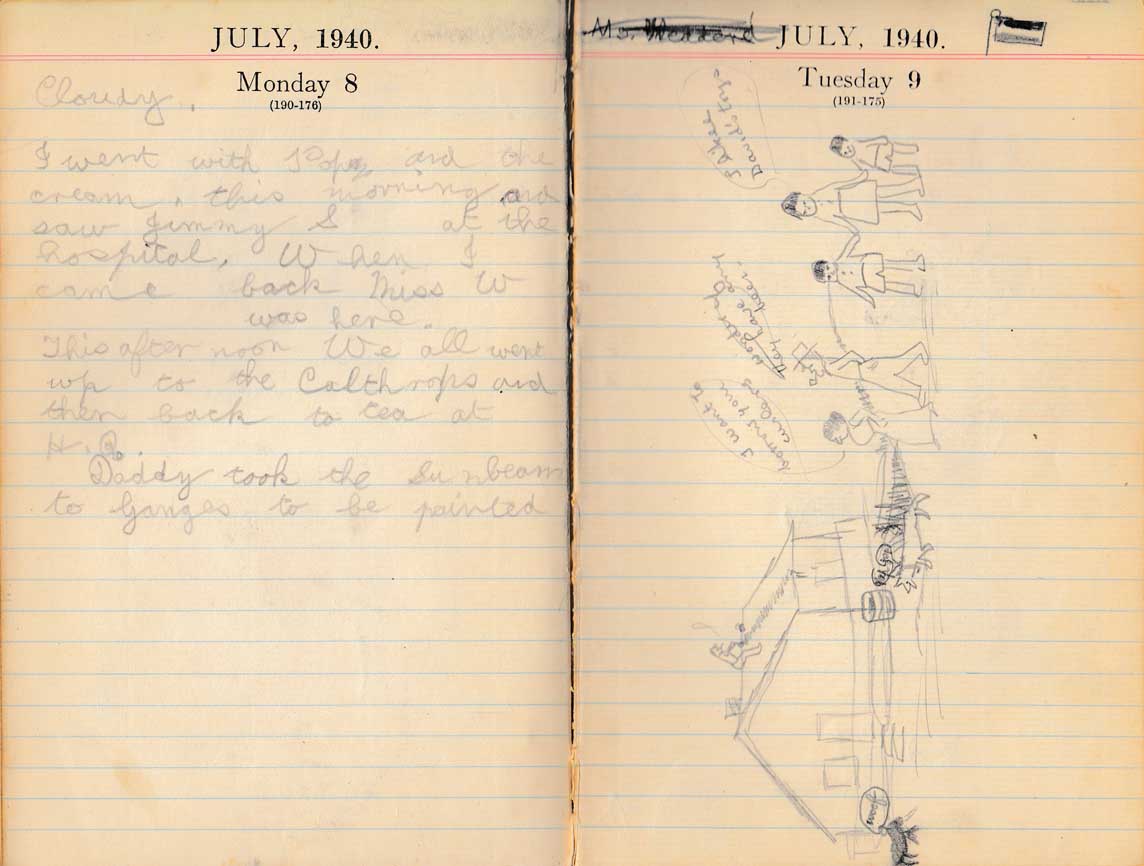 JULY, 1940.
Monday 8
(190-176)
Cloudy.
I went with Popsy and the
cream, this morning and
saw Jimmy S at the
hospital, When I
came back Miss W
was here.
This after noon We all went
up to the Calthrops and
then back to tea at
H. B.
Daddy took the Sunbeam
to Ganges to be painted
JULY, 1940.
Tuesday 9
(191-175)
I like
David's toys
I wonder if
they have any
beer.
I want to
borrow your